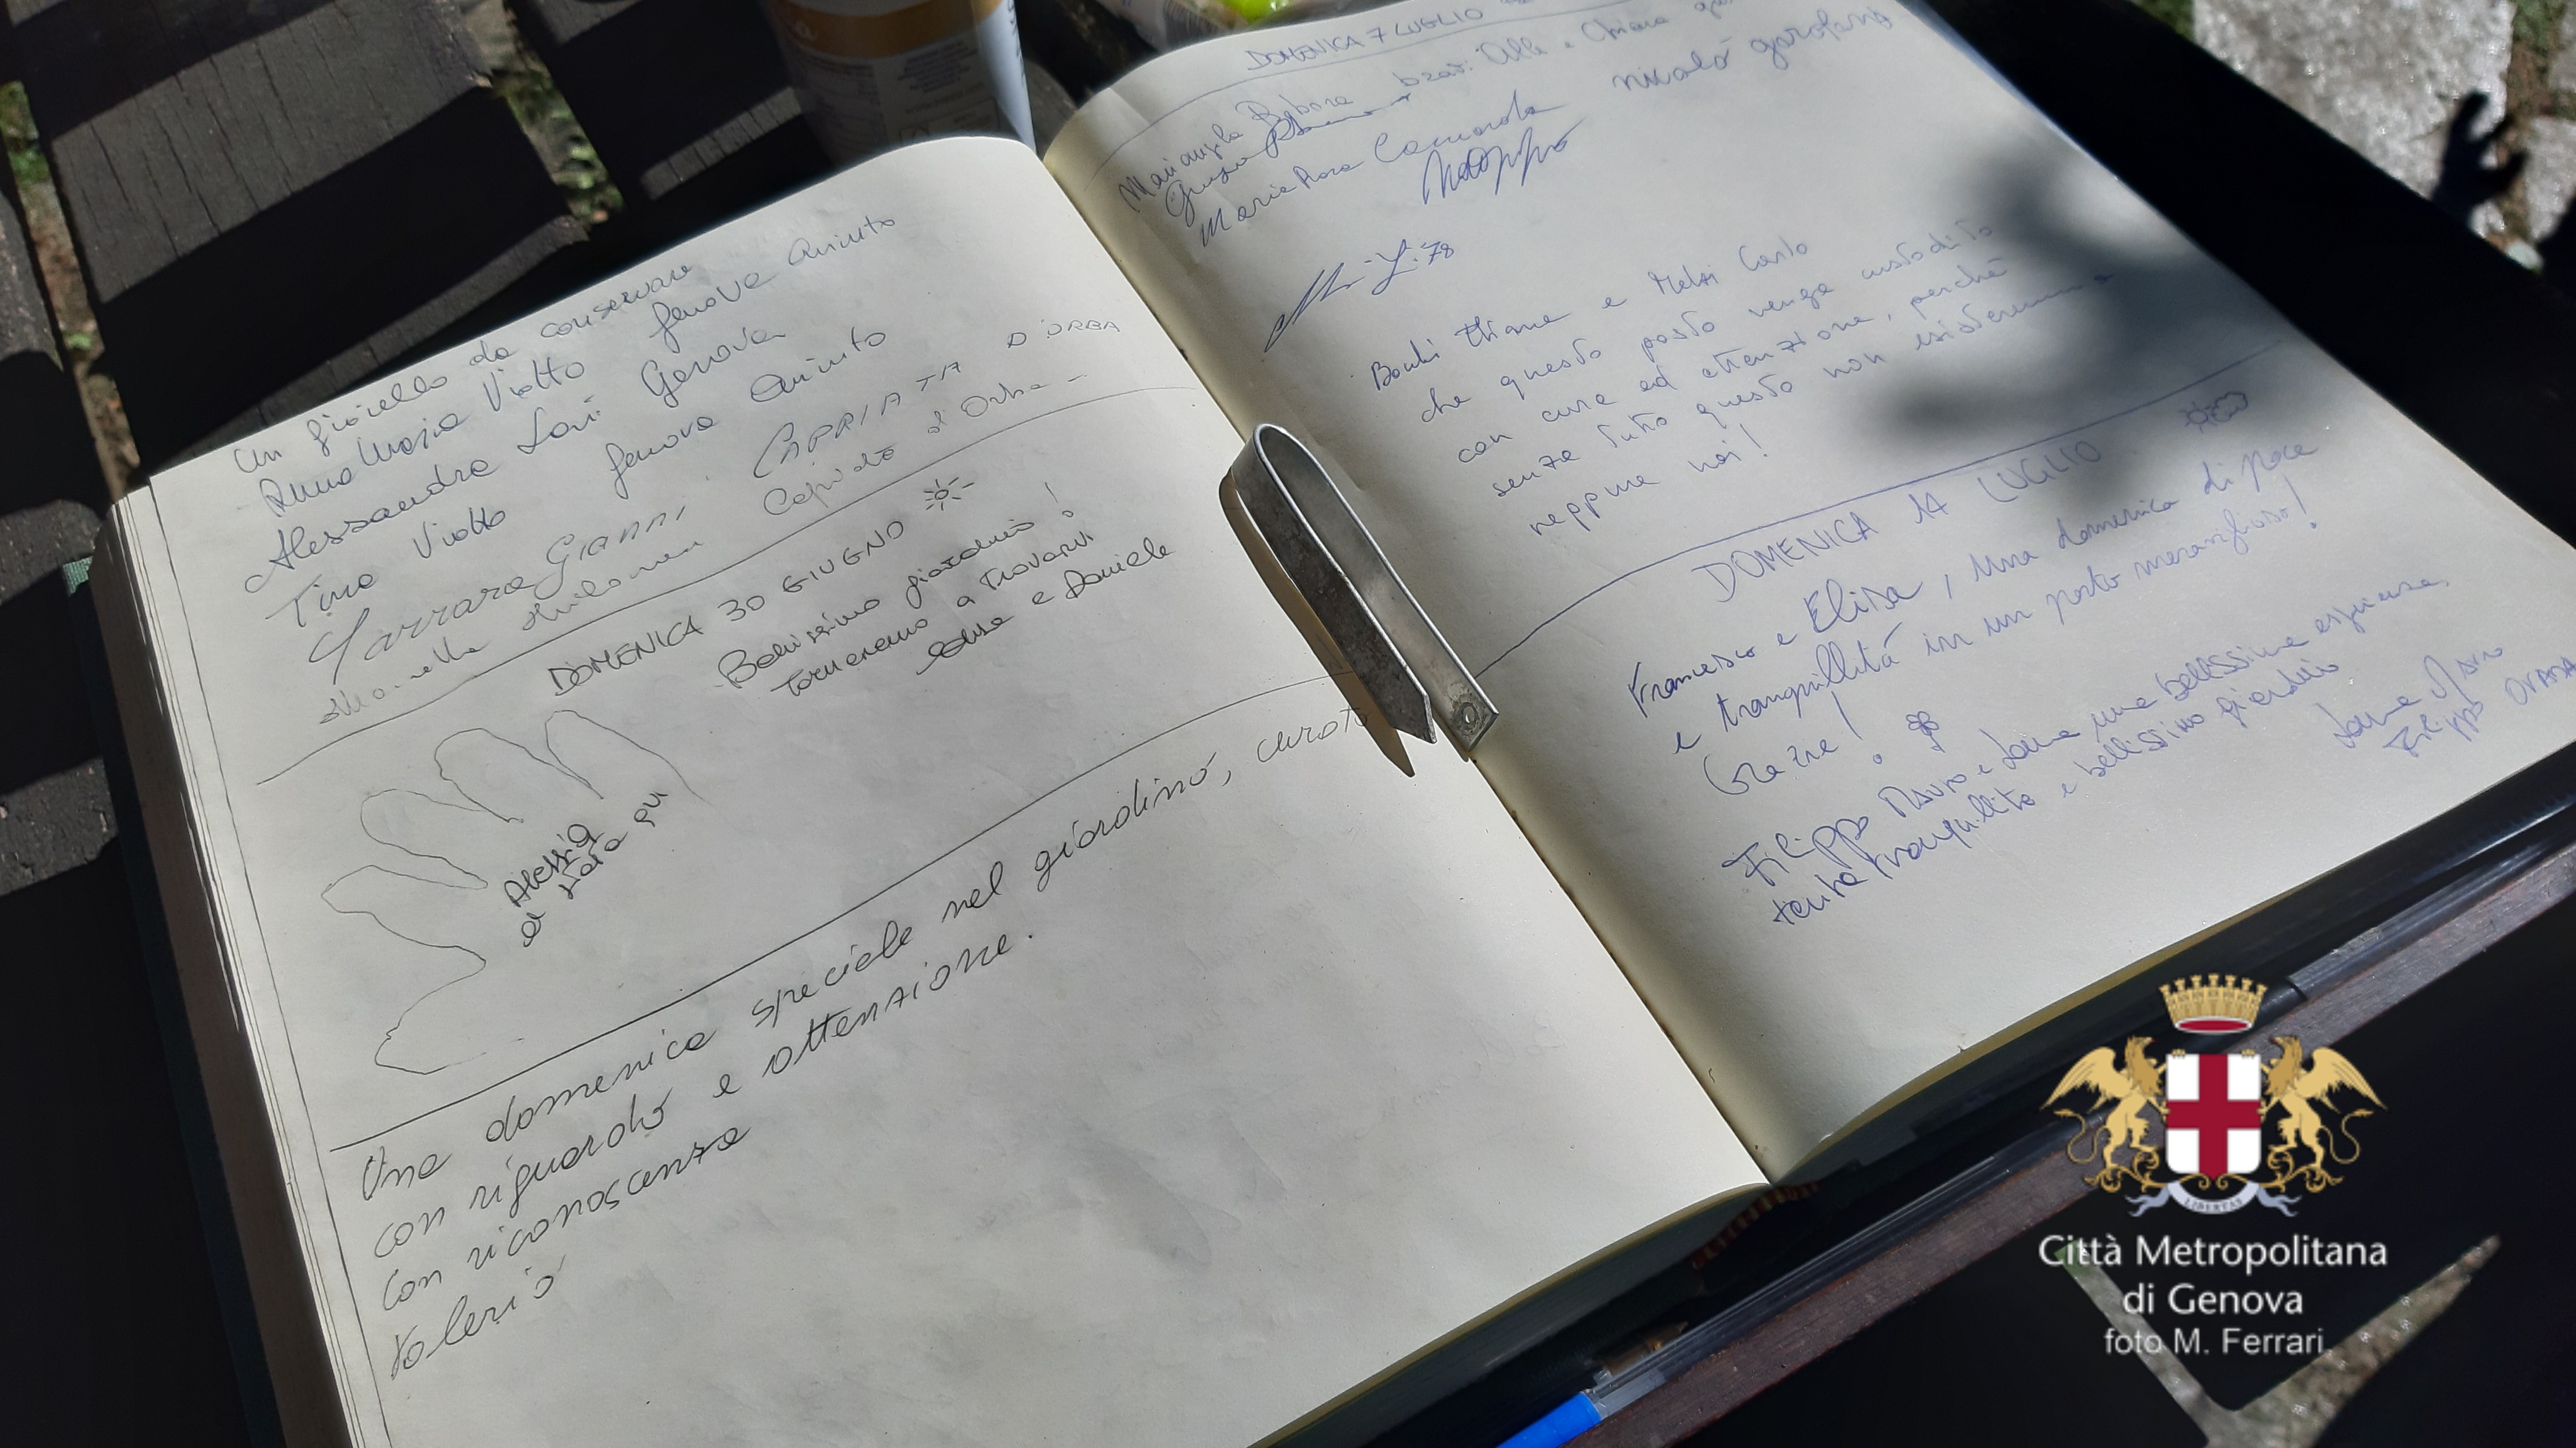 Un gioiello da conservare
Anna Maria Viotto Genova Quinto
Alessandra Genova
Tino Viotto Genova Quinto
Gianni CAPRIATA D'ORBA
d'Orba
DOMENICA 30 GIUGNO
Bellissimo giardino!
Torneremo a trovarvi
e Daniele
Alessia
è stata qui
Una domenica speciale nel giardino, curato
con riguardo e attenzione.
Con riconoscenza
Valerio
DOMENICA 7 LUGLIO
Mariangela
e Chiara
Maria Rosa
nicolò garofano
e Carlo
che questo posto venga custodito
con cura ed attenzione, perché
senza tutto questo non esisteremmo
neppure noi!
DOMENICA 14 LUGLIO
Francesco e Elisa, una domenica di pace
e tranquillità in un posto meraviglioso!
Grazie!
Filippo Mauro e una bellissima esperienza,
tanta tranquillità e bellissimo giardino
Mauro
Filippo OVADA
LIBERTAS
Città Metropolitana
di Genova
foto M. Ferrari